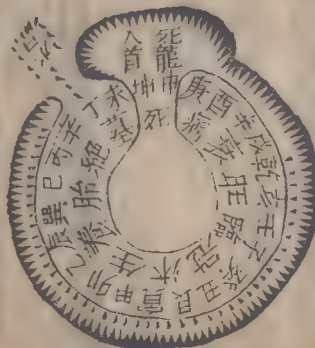 死龍
入首
申坤未丁午丙巳巽辰乙卯甲寅艮丑癸子壬亥乾戌辛酉庚
死墓絕胎養生沐冠臨旺衰病